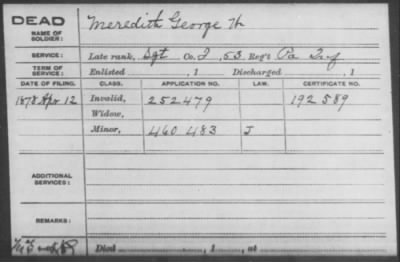 DEAD
NAME OF SOLDIER: Meredith George W
SERVICE: Late rank, Sgt Co. I, 53 Reg't Pa Inf
TERM OF SERVICE: Enlisted , 1 Discharged , 1
DATE OF FILING. CLASS. APPLICATION NO. LAW. CERTIFICATE NO.
1878 Apr 12 Invalid, 252479 192589
Widow,
Minor, 460483 J
ADDITIONAL SERVICES:
REMARKS:
Died , 1 , at